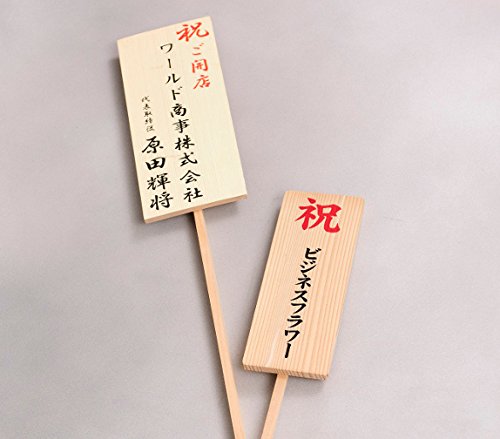 祝ご開店
ワールド商事株式会社
代表取締役 原田輝将
祝
ビジネスフラワー